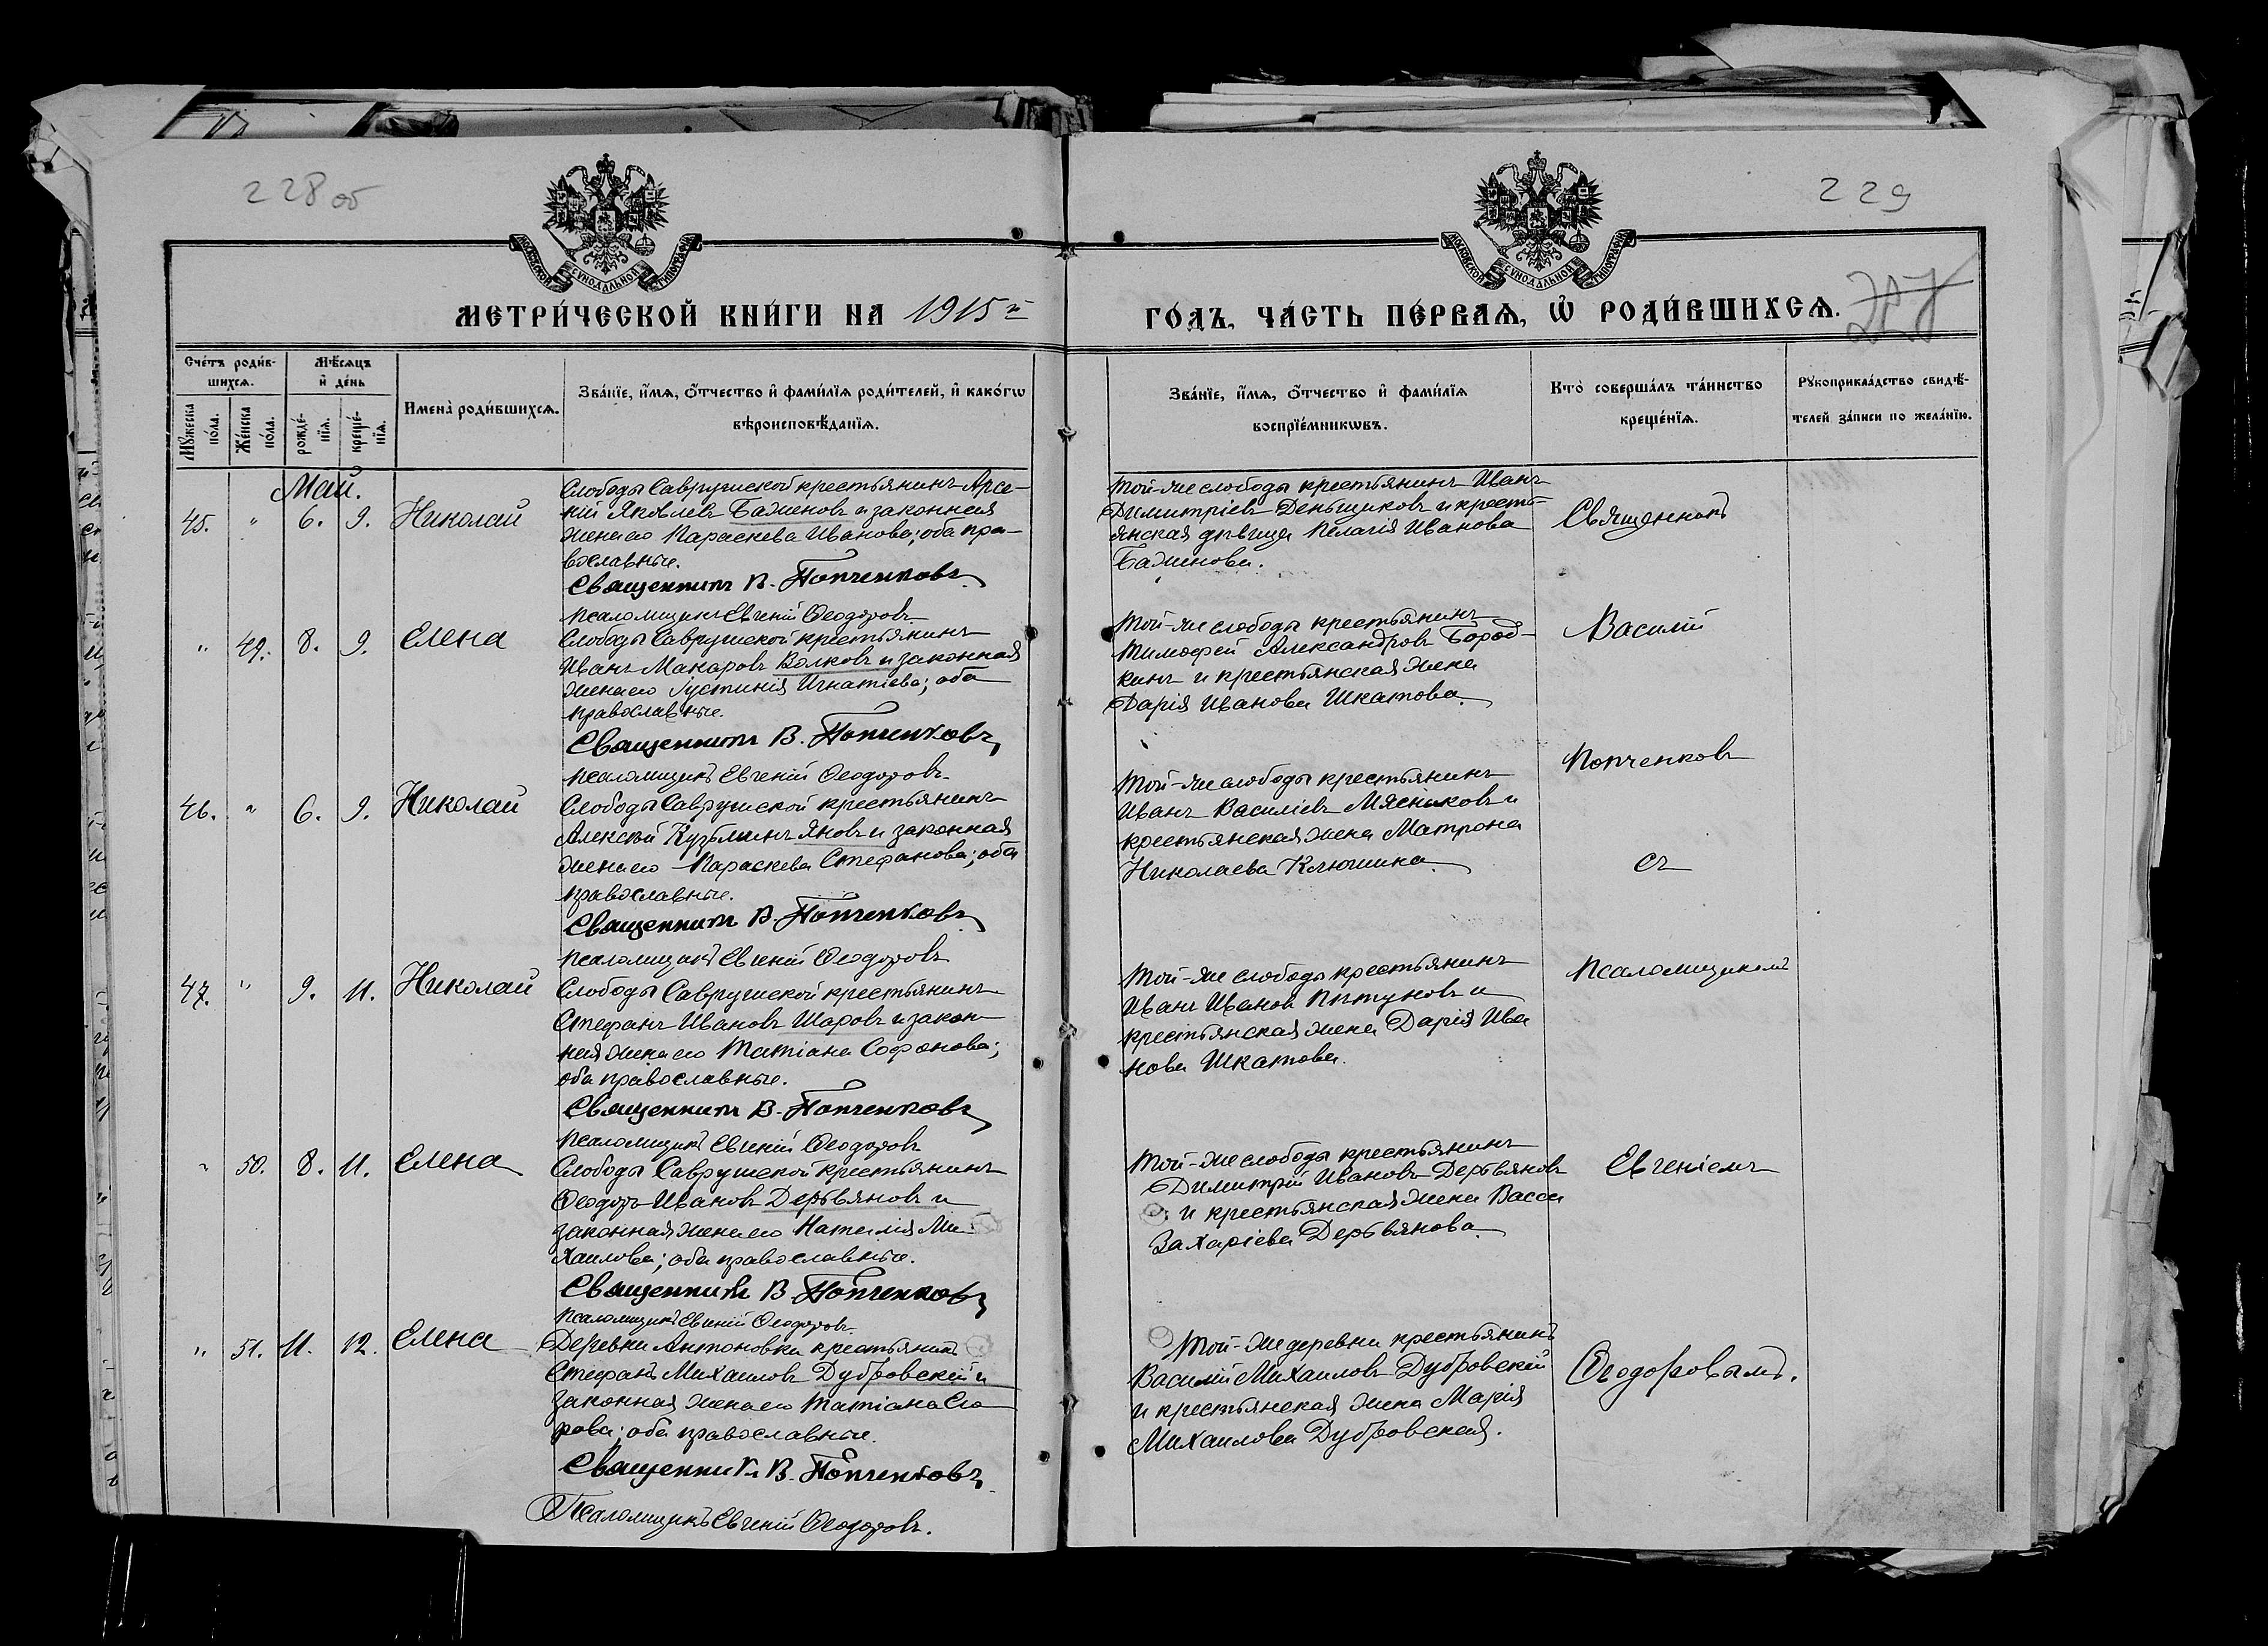 228 об
229
МОСКОВСКОЙ СѴНОДАЛЬНОЙ ТИПОГРАФІИ
МОСКОВСКОЙ СѴНОДАЛЬНОЙ ТИПОГРАФІИ
МЕТРИ́ЧЕСКОЙ КНИ́ГИ НА 1915й
ГО́ДЪ, ЧА́СТЬ ПЕ́РВАѦ, Ѡ҆ РОДИ́ВШИХСѦ.
Сче́тъ роди́в-
шихсѧ.
Мѣ́сѧцъ
и҆ де́нь
Мꙋ́жеска
по́ла.
Же́нска
по́ла.
рожде́-
нїѧ.
креще́-
нїѧ.
Имена̀ роди́вшихсѧ.
Зва́нїе, и҆́мѧ, ѻ҆́тчество и҆ фами́лїѧ роди́телей, и҆ како́гѡ
вѣроисповѣ́данїѧ.
Зва́нїе, и҆́мѧ, ѻ҆́тчество и҆ фами́лїѧ
воспрїе́мникѡвъ.
Кто̀ соверша́лъ та́инство
креще́нїѧ.
Рꙋкоприкла́дство свидѣ́-
телей за́писи по жела́нїю.
Май.
45. " 6. 9. Николай
Слободы Савручиской крестьянинъ Арсе-
ній Яковлевъ Баженовъ и законная
жена его Параскева Иванова; оба пра-
вославные.
Священникъ В. Попченковъ
Псаломщикъ Евгеній Ѳеодоровъ
Той-же слободы крестьянинъ Иванъ
Димитріевъ Деньщиковъ и кресть-
янская дѣвица Пелагія Иванова
Баженова.
Священникъ
" 49. 8. 9. Елена
Слободы Савручиской крестьянинъ
Иванъ Макаровъ Волковъ и законная
жена его Іустинія Игнатіева; оба
православные.
Священникъ В. Попченковъ
Псаломщикъ Евгеній Ѳеодоровъ
Той-же слободы крестьянинъ
Тимофей Александровъ Бород-
кинъ и крестьянская жена
Дарія Иванова Шкатова.
Василій
Попченковъ
46. " 6. 9. Николай
Слободы Савручиской крестьянинъ
Алексѣй Кузьминъ Яновъ и законная
жена его Параскева Стефанова; оба
православные.
Священникъ В. Попченковъ
Псаломщикъ Евгеній Ѳеодоровъ
Той-же слободы крестьянинъ
Иванъ Василіевъ Мясниковъ и
крестьянская жена Матрона
Николаева Клюшина.
съ
47. " 9. 11. Николай
Слободы Савручиской крестьянинъ
Стефанъ Ивановъ Шаровъ и закон-
ная жена его Татіана Софонова;
оба православные.
Священникъ В. Попченковъ
Псаломщикъ Евгеній Ѳеодоровъ
Той-же слободы крестьянинъ
Иванъ Ивановъ Пѣтуновъ и
крестьянская жена Дарія Ива
нова Шкатова.
Псаломщикомъ
" 50. 8. 11. Елена
Слободы Савручиской крестьянинъ
Ѳеодоръ Ивановъ Деревяновъ и
законная жена его Наталія Ми-
хаилова; оба православные.
Священникъ В. Попченковъ
Псаломщикъ Евгеній Ѳеодоровъ
Той-же слободы крестьянинъ
Димитрій Ивановъ Деревяновъ
и крестьянская жена Васса
Захаріева Деревянова.
Евгеніемъ
" 51. 11. 12. Елена
Деревни Антоновки крестьянинъ
Стефанъ Михаиловъ Дубровскій и
законная жена его Татіана
оба православные.
Священникъ В. Попченковъ
Псаломщикъ Евгеній Ѳеодоровъ.
Той-же деревни крестьянинъ
Василій Михаиловъ Дубровскій
и крестьянская жена Марія
Михаилова Дубровская.
Ѳеодоровымъ.